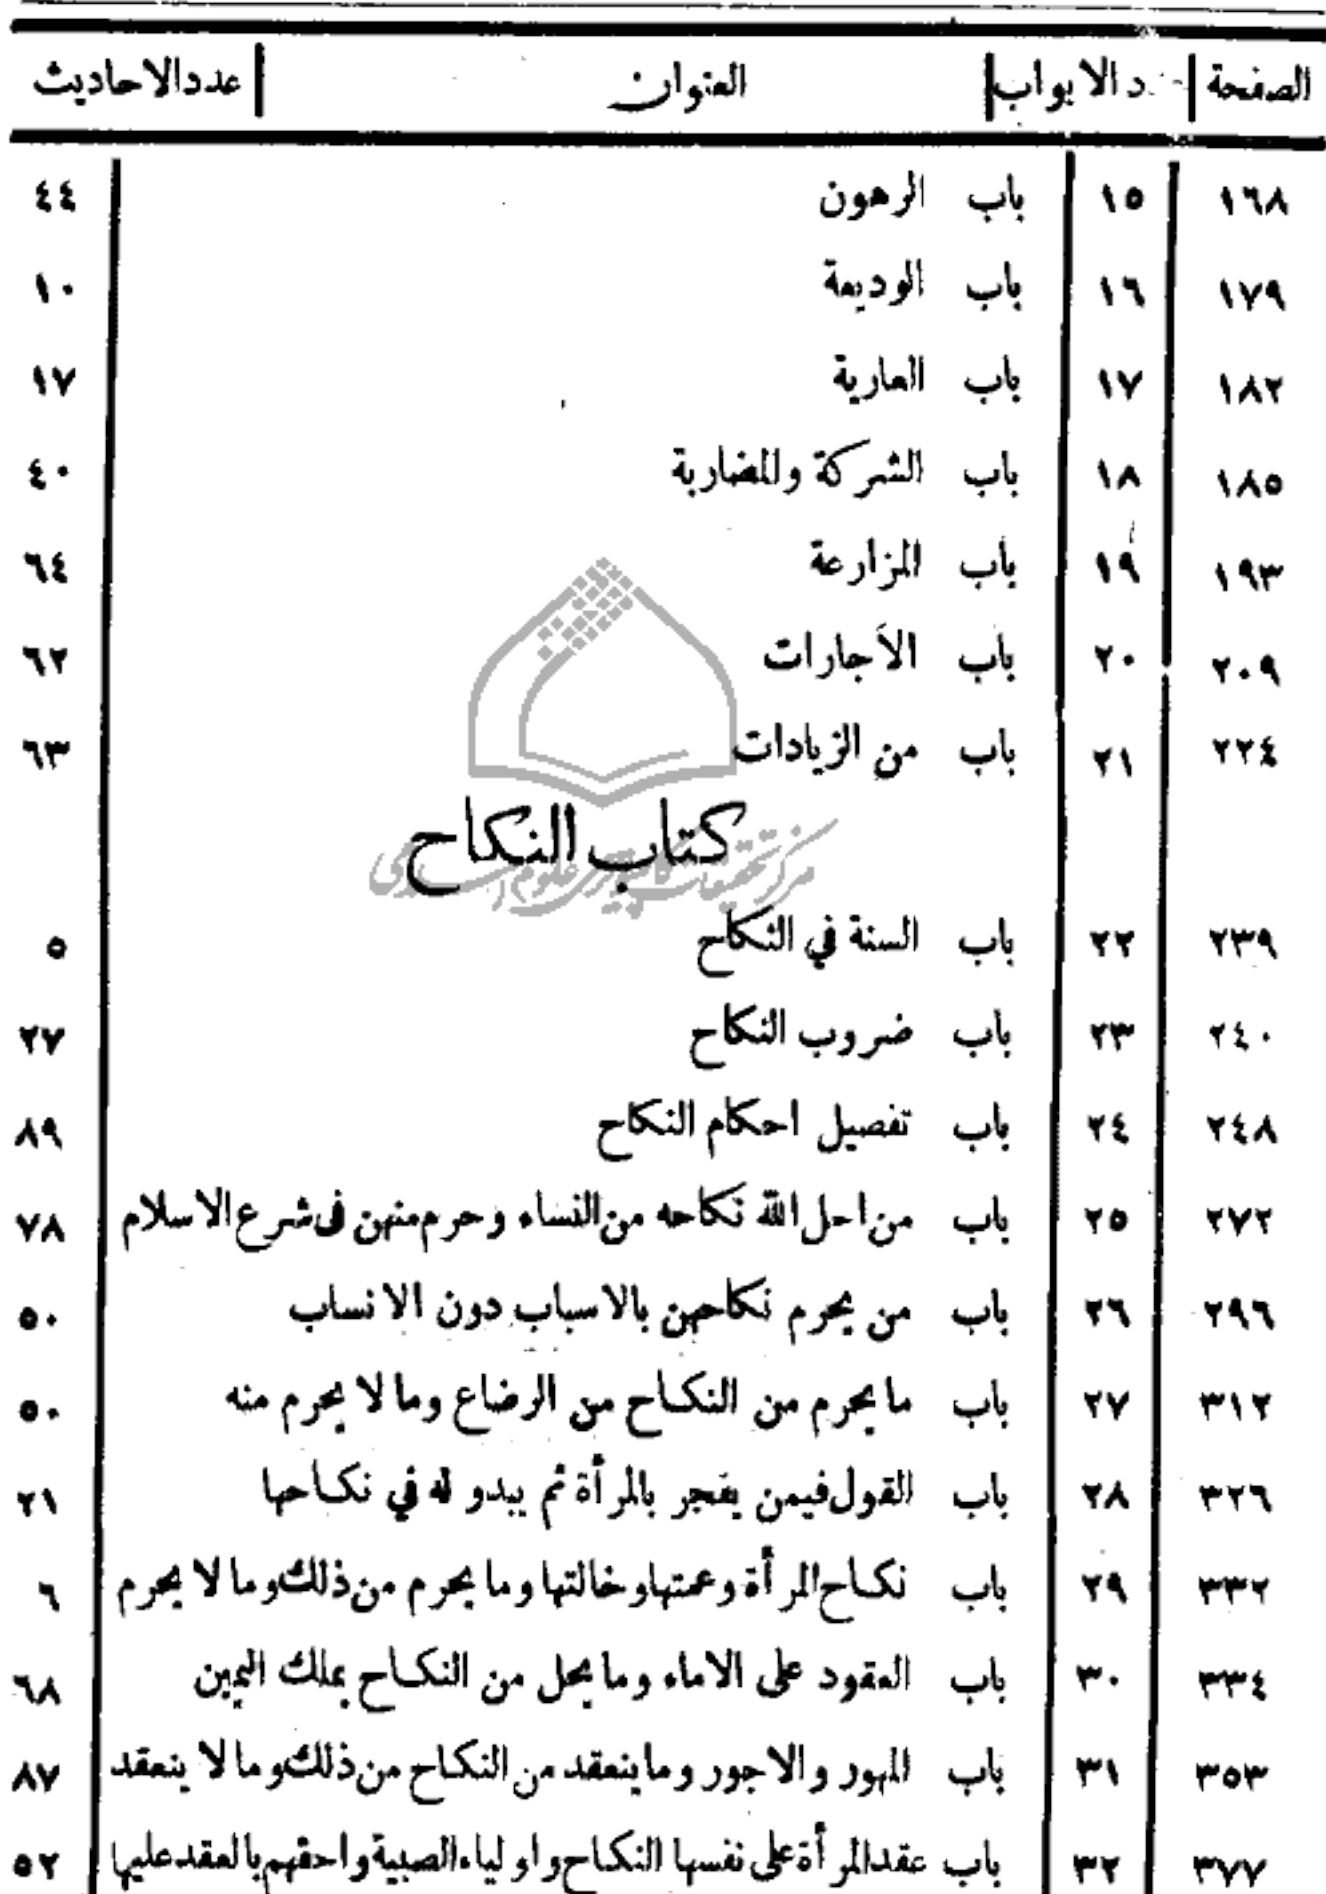 الصفحة د الابواب العنوان عدد الاحاديث
١٦٨ ١٥ باب الرهون ٤٤
١٧٩ ١٦ باب الوديعة ١٠
١٨٢ ١٧ باب العارية ١٧
١٨٥ ١٨ باب الشركة والمضاربة ٤٠
١٩٣ ١٩ باب المزارعة ٦٤
٢٠٩ ٢٠ باب الاجارات ٦٢
٢٢٤ ٢١ باب من الزيادات ٦٣
كتاب النكاح
مركز تحقيقات كامپيوترى علوم اسلامى
٢٣٩ ٢٢ باب السنة في النكاح ٥
٢٤٠ ٢٣ باب ضروب النكاح ٢٧
٢٤٨ ٢٤ باب تفصيل احكام النكاح ٨٩
٢٧٢ ٢٥ باب من احل الله نكاحه من النساء وحرم منهن فى شرع الاسلام ٧٨
٢٩٦ ٢٦ باب من يحرم نكاحهن بالاسباب دون الانساب ٥٠
٣١٢ ٢٧ باب ما يحرم من النكاح من الرضاع وما لا يحرم منه ٥٠
٣٢٦ ٢٨ باب القول فيمن يفجر بالمرأة ثم يبدو له في نكاحها ٢١
٣٣٢ ٢٩ باب نكاح المرأة وعمتها وخالتها وما يحرم من ذلك وما لا يحرم ٦
٣٣٤ ٣٠ باب العقود على الاماء وما يحل من النكاح بملك اليمين ٦٨
٣٥٣ ٣١ باب المهور والاجور وما ينعقد من النكاح من ذلك وما لا ينعقد ٨٧
٣٧٧ ٣٢ باب عقد المرأة على نفسها النكاح واولياء الصبية واحقهم بالعقد عليها ٥٢